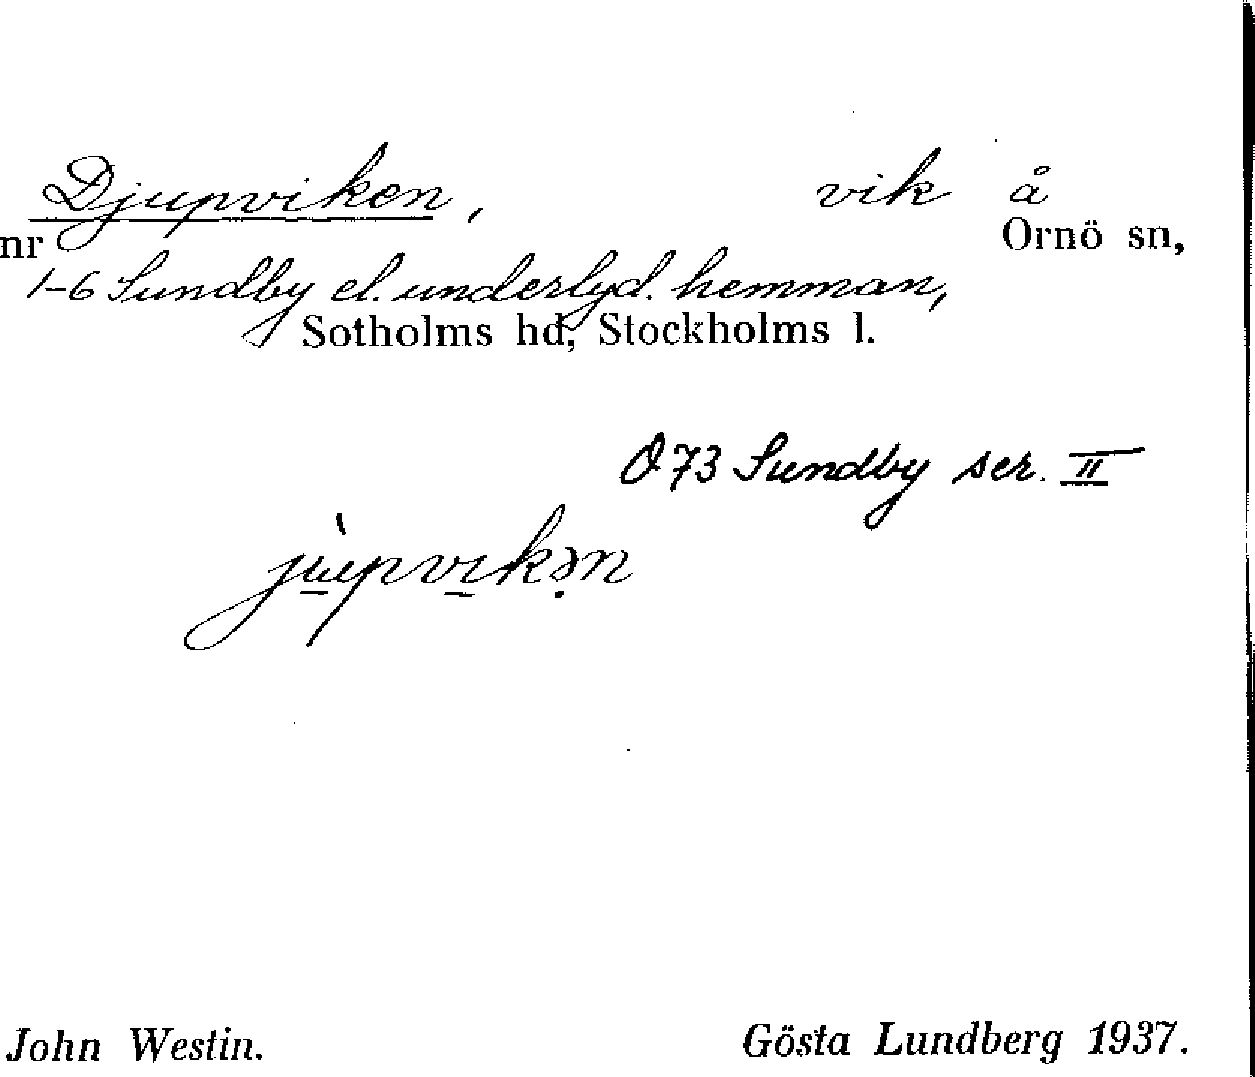 Djupviken, vik å
nr Ornö sn,
1-6 Sundby el. underlyd. hemman,
Sotholms hd, Stockholms l.
Ö 73 Sundby ser. II
jùpvikən
John Westin. Gösta Lundberg 1937.